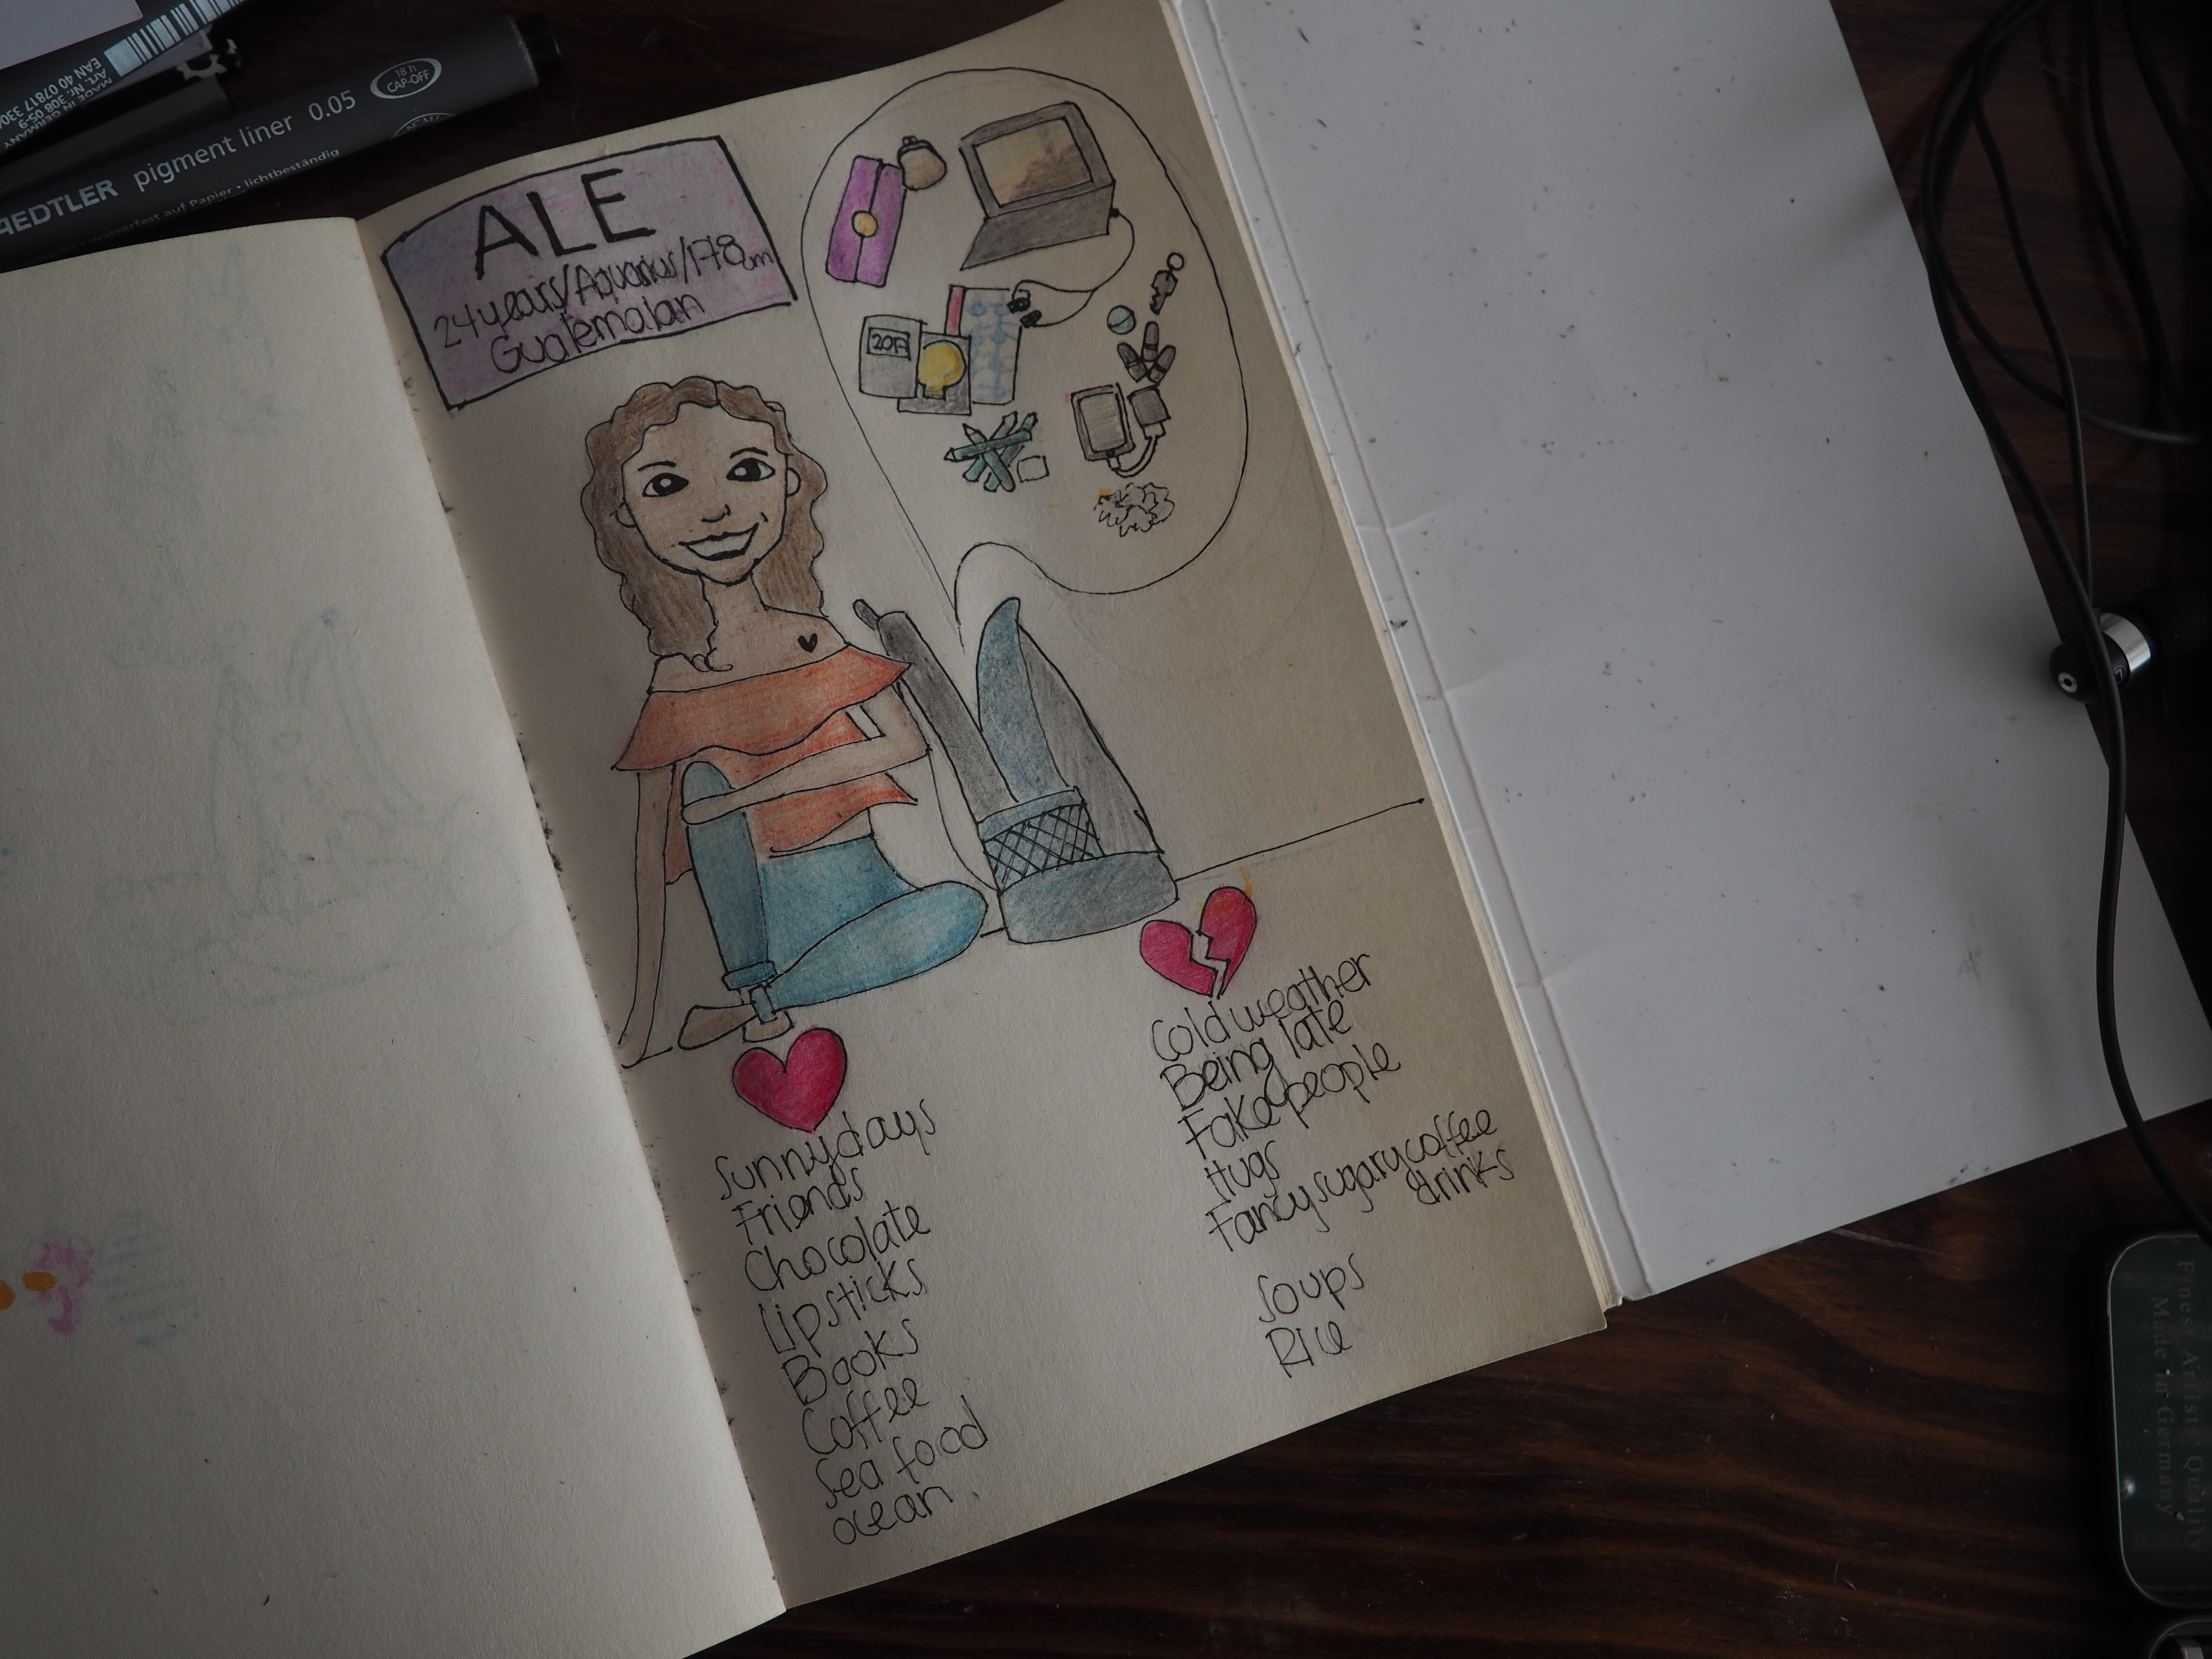 MADE IN GERMANY
Art. Nr. 308 05-9
EAN 40 07817 330
AEDTLER pigment liner 0.05
18 h
CAP-OFF
wasserfest auf Papier • lichtbeständig
ALE
24 years/Aquarius/178cm
Guatemalan
2017
Sunny days
Friends
Chocolate
Lipsticks
Books
Coffee
Sea food
ocean.
Cold weather
Being late
Fake people
Hugs
Fancy sugary coffee
drinks
Soups
Rice
Finest Artists' Quality
Made in Germany